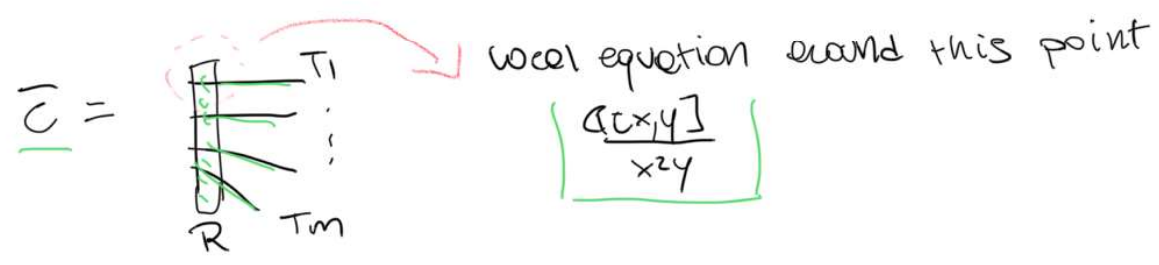 T1
local equation around this point
C̅ =
ℂ[x,y]
x²y
⋮
Tm
R